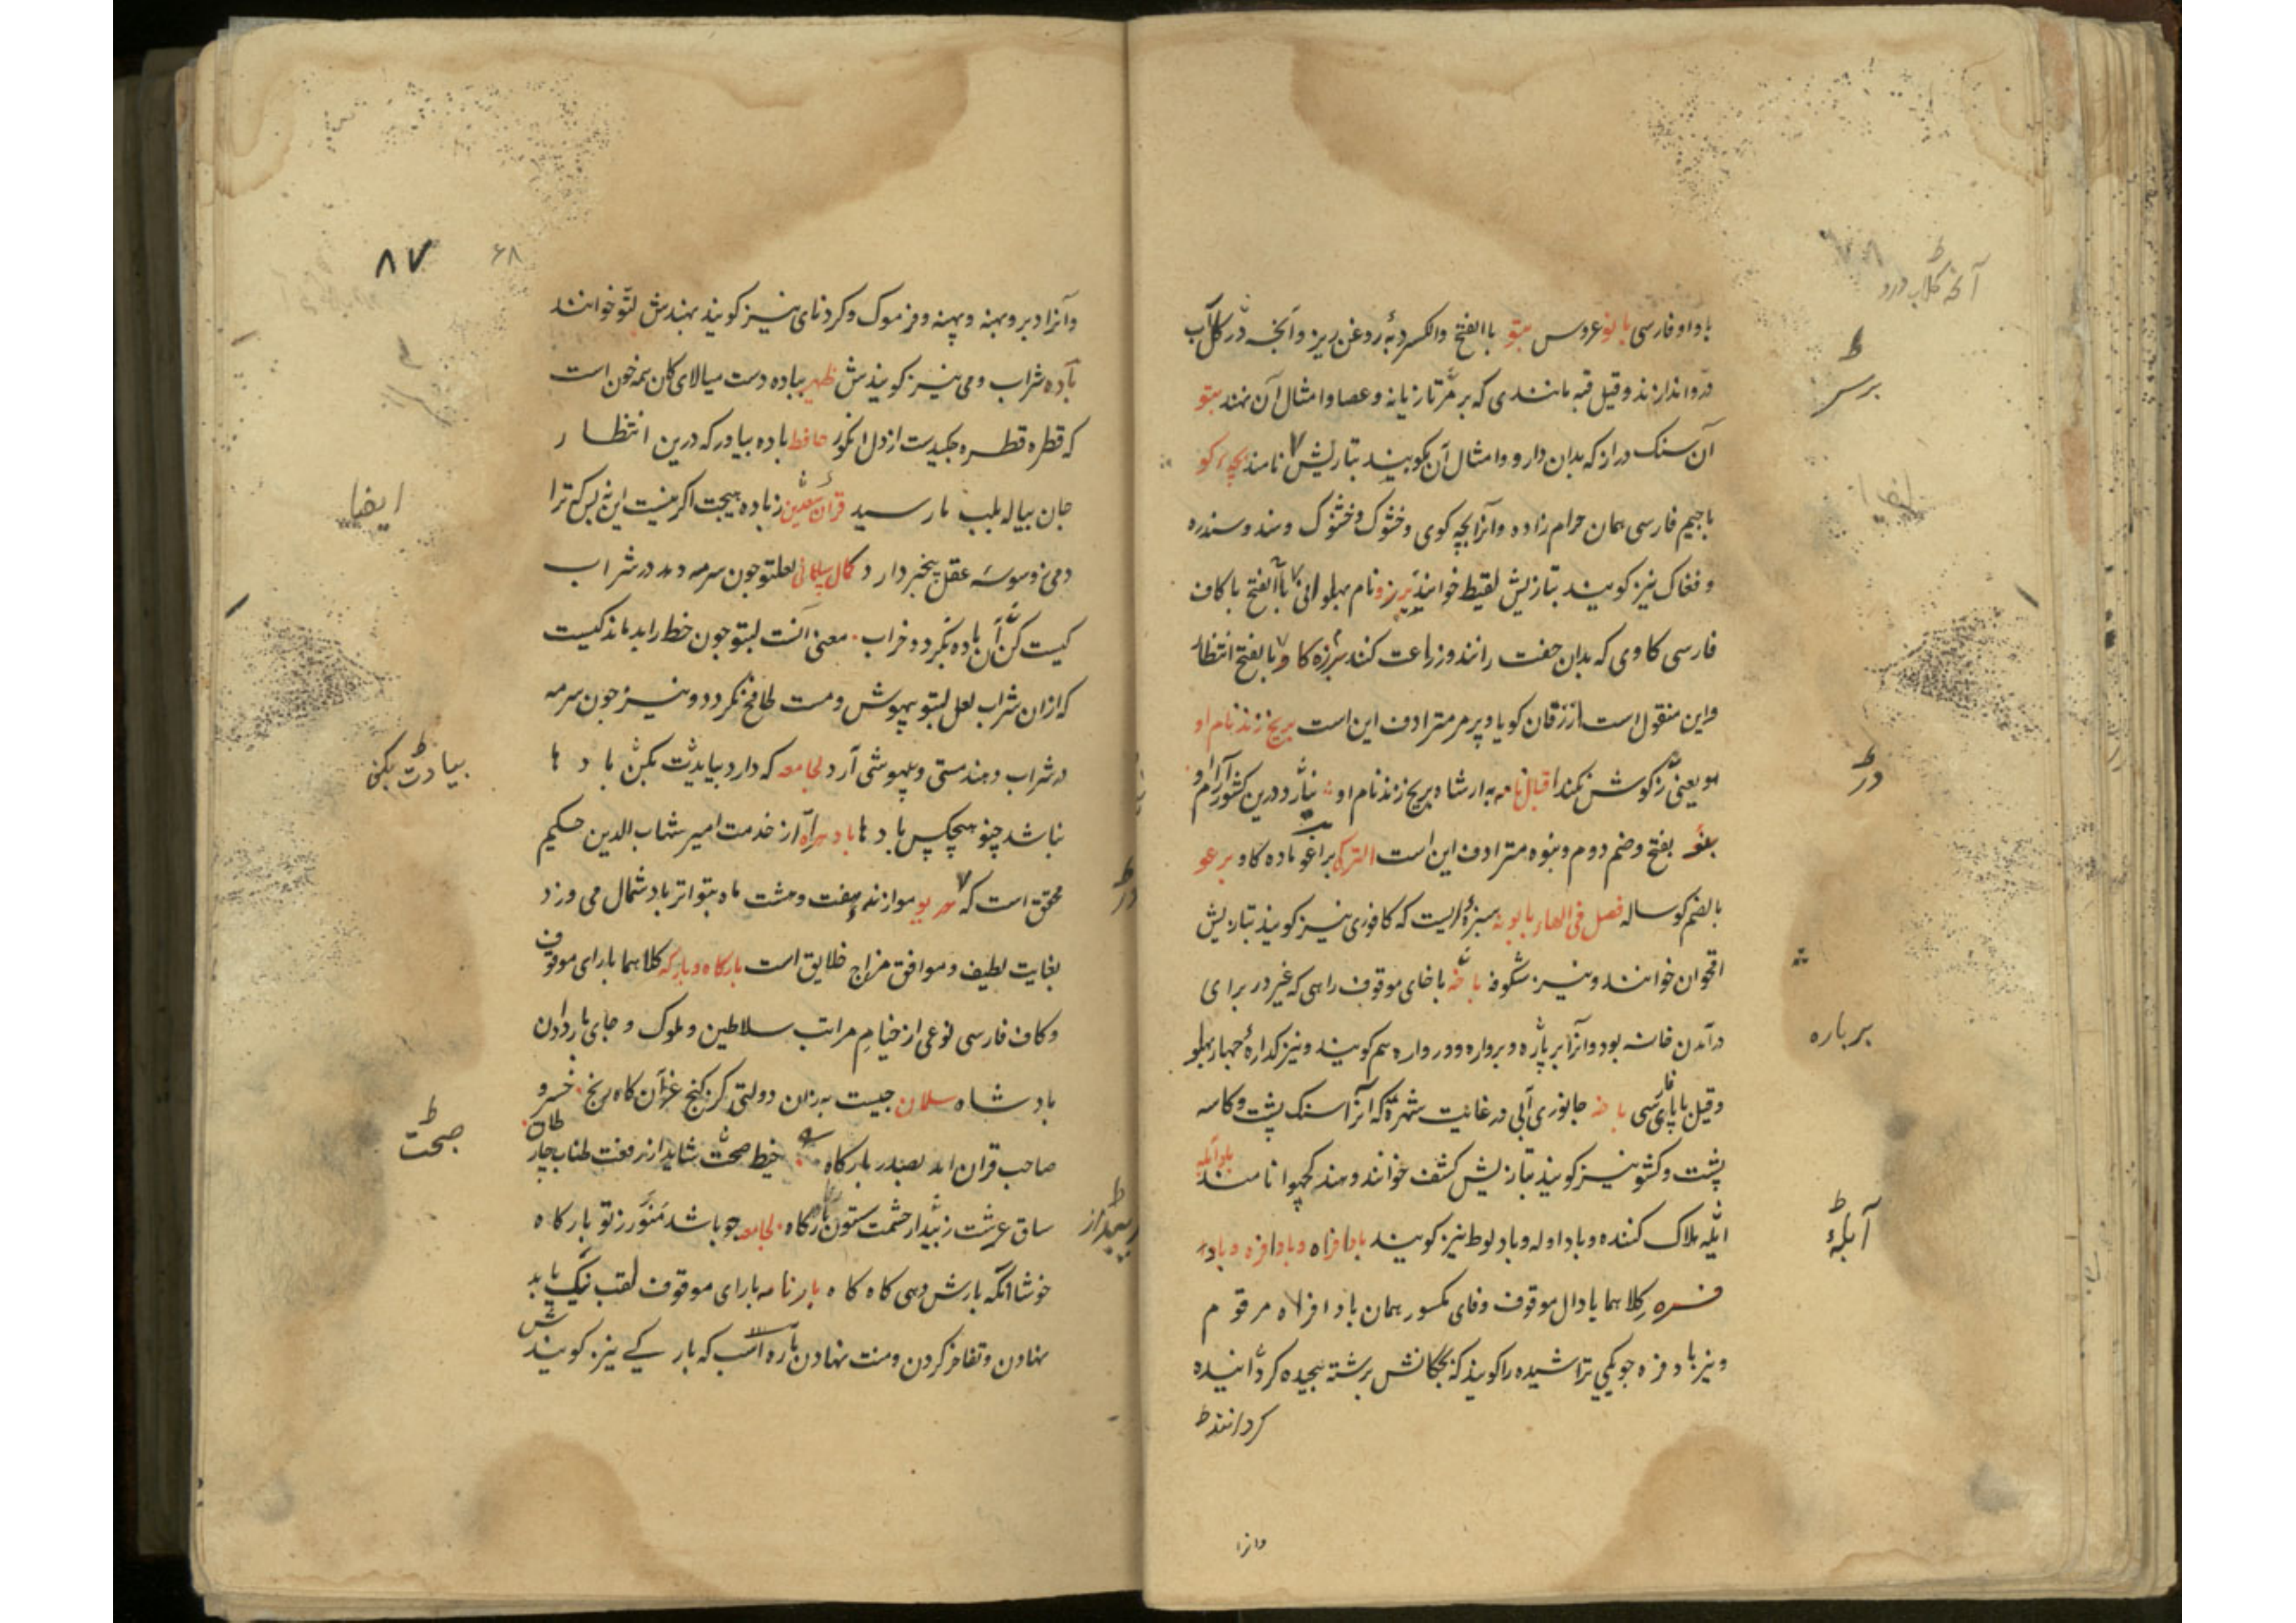 با واو فارسی بانو عروس بتو باالفتح والکسر دبهٔ روغن ریز و آنچه در گلاب
در و اندازند و قیل قبه مانندی که بر سر تازیانه و عصا و امثال آن نهند بتو
آن سنک دراز که بدان دارو و امثال آن بکوبند بتازیش نامند بچه کو
باجیم فارسی همان حرام زاده و آنرا بچه کوی و خشوک و خشوک و سند و سندره
و فغاک نیز کویند بتازیش لقیط خوانند برزو نام پهلوانی باالفتح با کاف
فارسی کاوی که بدان جفت رانند و زراعت کنند برزه کاو بالفتح انتظار
واین منقول است از زفان کویا و پرمر مترادف این است بریخ زند نام او
هو یعنی زکوشش نکند اقبالنامه به ار شاه بریخ زند نام او نیارد درین کشور آرام او
بغو بفتح وضم دوم و بنوه مترادف این است الترک براغو ماده کاو برغو
بالضم کوساله فصل فی الهاء بابونه سبزهٔ ایست که کافوری نیز کویند بتازیش
اقحوان خوانند و نیز شکوفه باخه باخای موقوف راهی که غیر در برای
درآمدن خانه بود و آنرا برپاره و برواره و ورواره هم کویند و نیز کدارهٔ چهار پهلو
وقیل باپای فارسی باخه جانوری آبی در غایت شهرة که آنرا سنک پشت و کاسه
پشت و کشو نیز کویند بتازیش کشف خوانند و هند کچهوا نامند بادآبله
ابله هلاک کننده و باد اوله و بادلوط نیز کویند بادافراه و بادافره و باد
فره کلاهما بادال موقوف وفای مکسور همان بادافراه مرقوم
و نیز بادفره چوبکی تراشیده را کویند که بچکانش برشته پیچیده کردانیده
کردانند ط
وانرا
ط
برسر
ط
در
برباره
ط
آبلهٔ
۸۷
۶۸
وآنرا دبر و بهنه و پهنه و فرموک و کردنای نیز کویند بهندش لتو خوانند
باده شراب و می نیز کویندش ظهیر بباده دست میالای کان همه خون است
که قطره قطره چکیدست از دل انکور حافظ باده بیاور که درین انتظار
جان بیاله بلب ما رسید قران سعدین زباده هیچت اکر نیست این نه بس که ترا
دمی ز وسوسهٔ عقل بیخبر دارد کمال سپاهانی لعلتو چون سرمه دهد در شراب
کیست کز آن باده نکردد خراب معنی آنست لبتو چون خط را بدماند کیست
که ازان شراب لعل لبتو بیهوش و مست طافح نکردد و نیز چون سرمه
در شراب دهند مستی و بیهوشی آرد لجامعه که دارد بیابدت بکن بادها
نباشد چنو هیچکس بادها باد هراه از خدمت امیر شهاب الدین حکیم
محقق است که موازنه هفت و هشت ماه بتواتر باد شمال می وزد
بغایت لطیف و موافق مزاج خلایق است بارکاه و بارکه کلاهما بارای موقوف
و کاف فارسی نوعی از خیام مراتب سلاطین و ملوک و جای باردادن
بادشاه سلمان چیست به زان دولتی کز کنج غز آن کاه رنج خسرو
صاحب قران اید بصدر بارکاه خیط صحت شاید از رفعت طناب چار طاق
ساق عرشت زیبد از حشمت ستون بارکاه لجامعه چو باشد منور ز تو بارکاه
خوشا انکه بارش دهی کاه کاه بارنامه بارای موقوف لقب نیک یا بد
نهادن و تفاخر کردن و منت نهادن باره اسب که بار کے نیز کویندش
ایضا
ط
بیادت بکن
ط
صحت